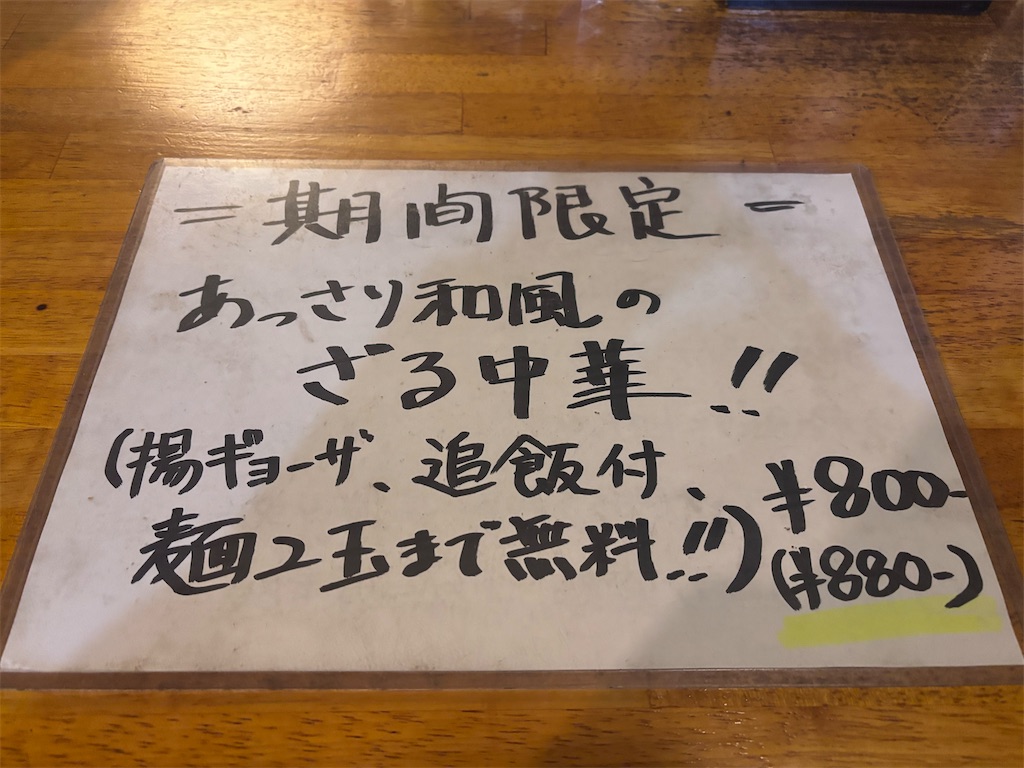 =期間限定=
あっさり和風の
ざる中華!!
(揚ギョーザ、追飯付、
麺2玉まで無料!!)
¥800-
(¥880-)